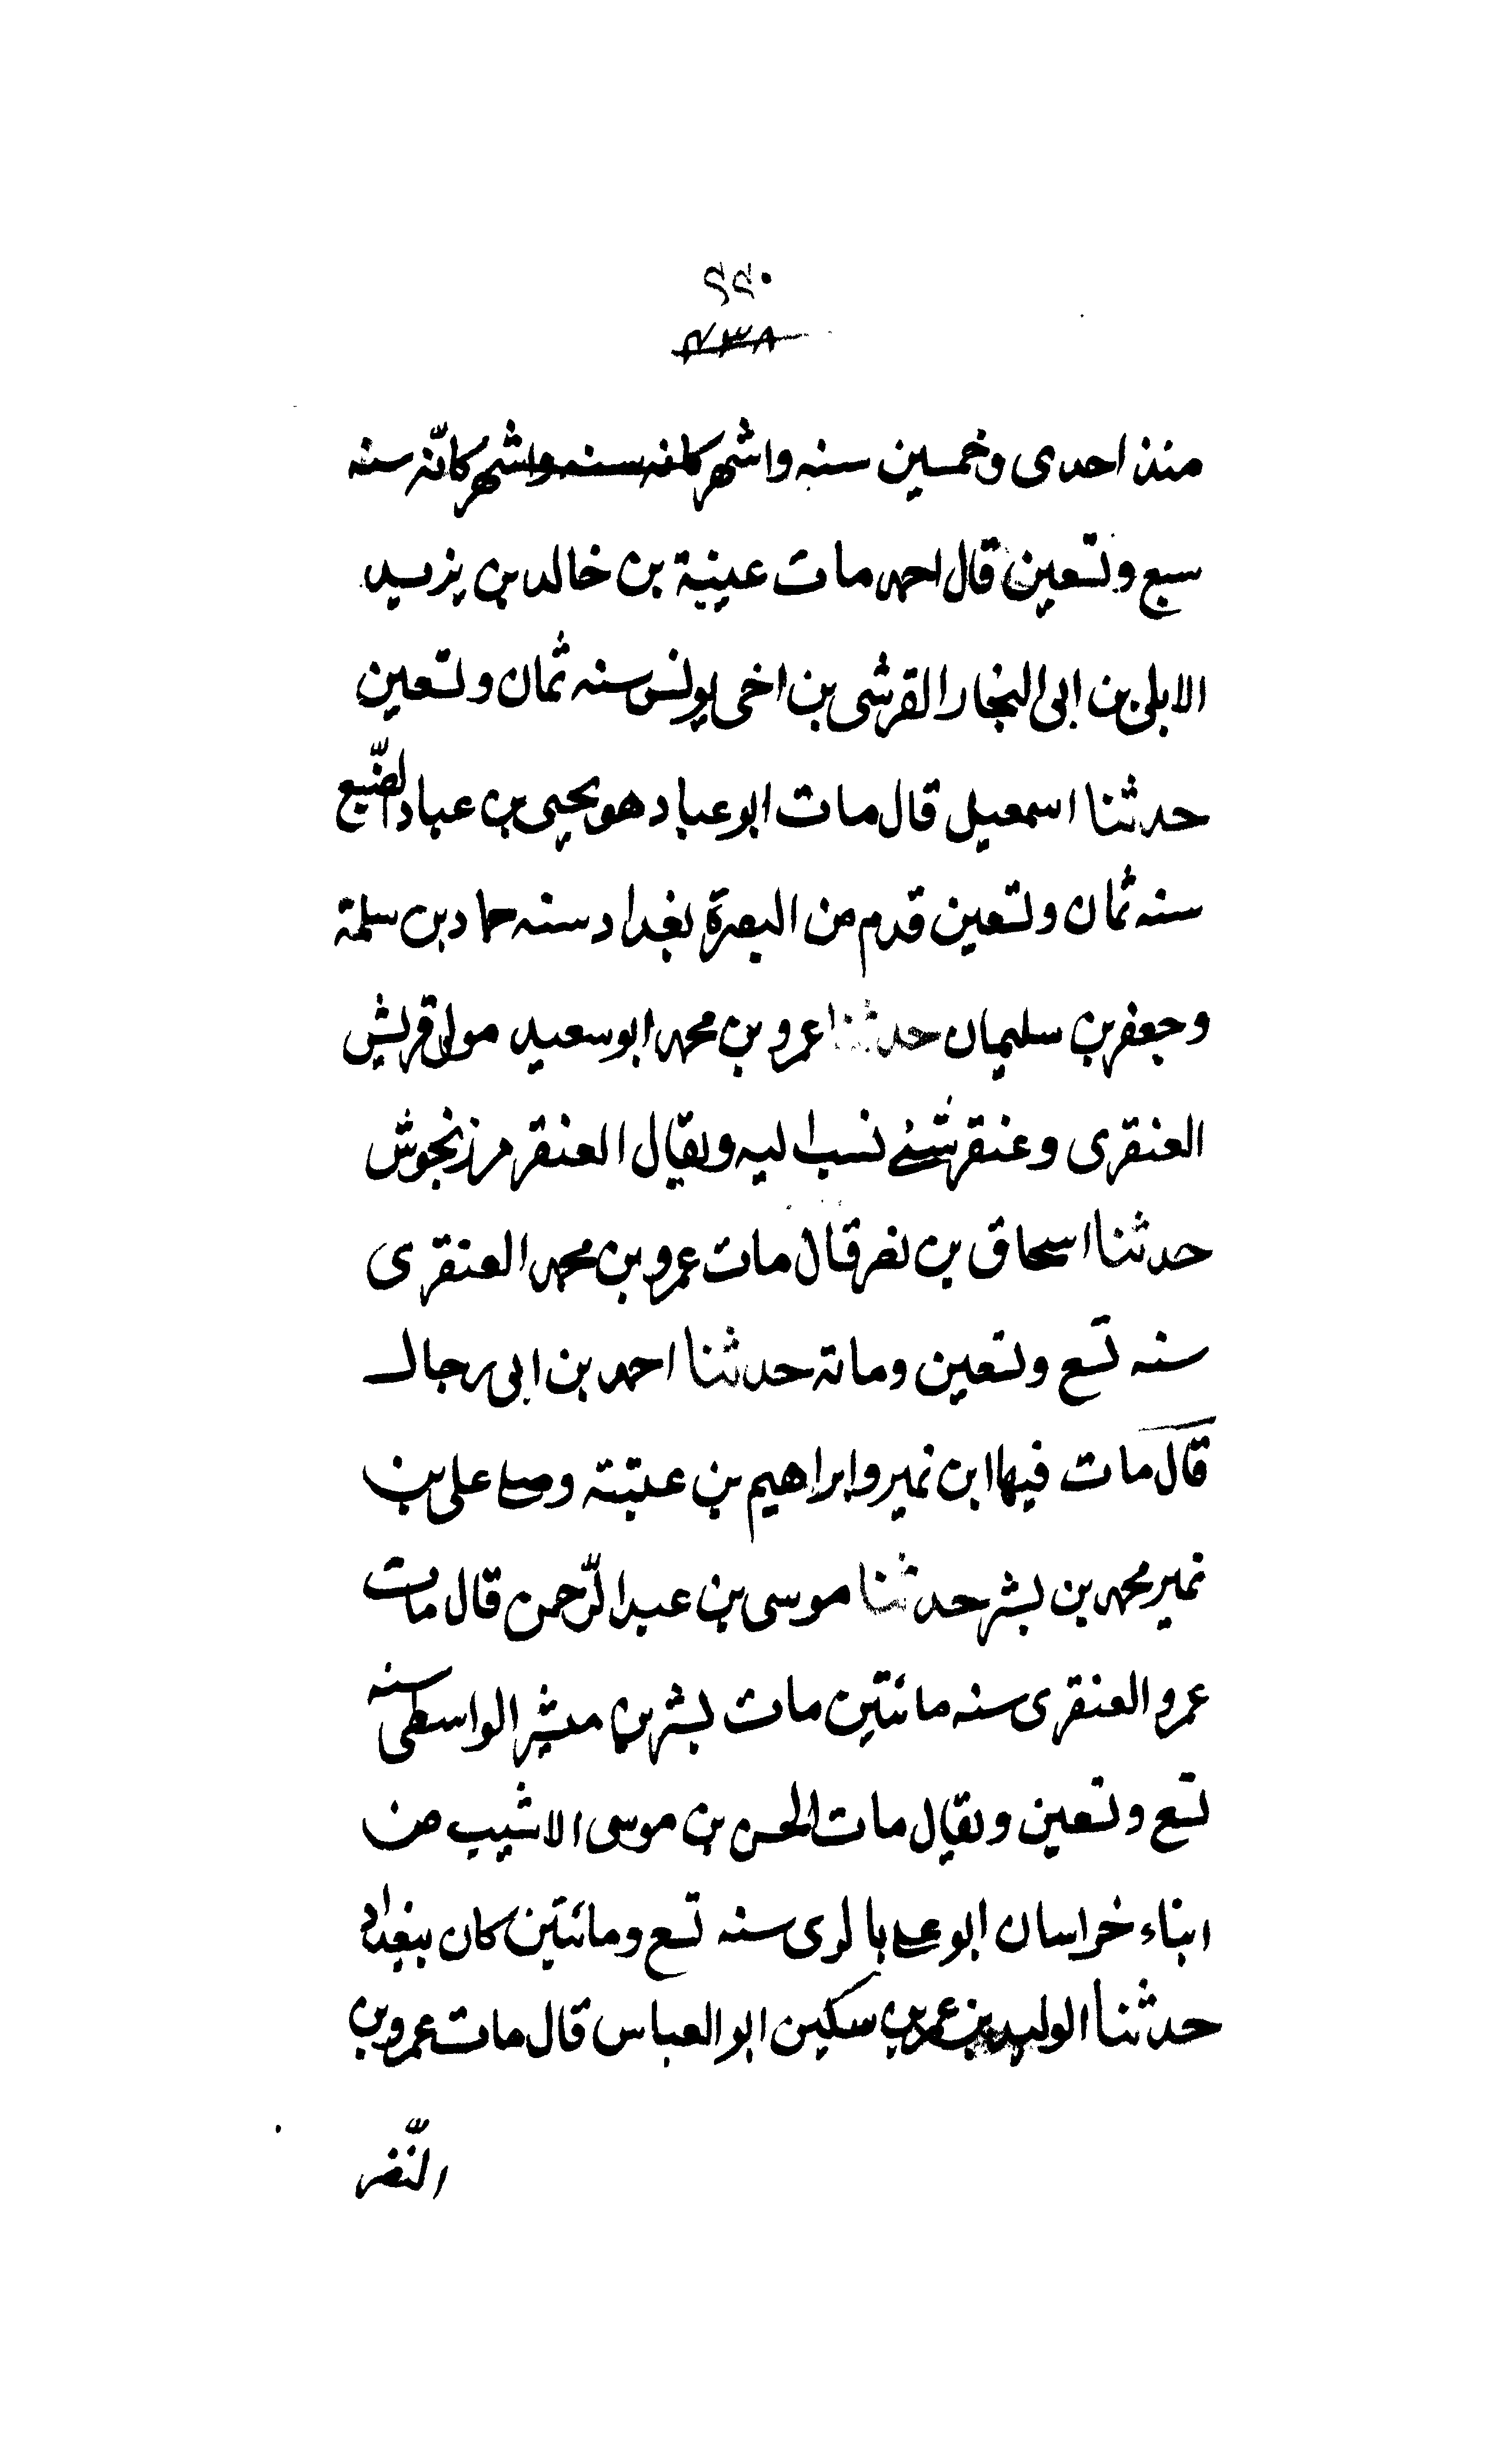 ٢٢٠
٢٣٨
منذ احدى وخمسين سنه واشهر كانه سنه واشهر كانّه سنه
سبع وتسعين قال احمد مات عنبسة بن خالد بن يزيد
الابلى بن ابى النجار القرشى بن اخى يونس سنه ثمان وتسعين
حدثنا اسمعيل قال مات ابو عباد هو يحيى بن عباد الضّبع
سنه ثمان وتسعين قدم من البصرة بغداد سنه حماد بن سلمة
وجعفر بن سليمان حدثنا عمرو بن محمد ابو سعيد مولى قريش
العنقرى وعنقر شئ نسب اليه ويقال العنقر مرزنجوش
حدثنا اسحاق بن نصر قال مات عمرو بن محمد العنقرى
سنه تسع وتسعين ومائة حدثنا احمد بن ابى رجال
قال مات فيها ابن نمير وابراهيم بن عتبة وصلى على بن
نمير محمد بن بشر حدثنا موسى بن عبد الرّحمن قال مات
عمرو العنقرى سنه مائتين مات بشر بن مبشر الواسطى سنه
تسع وتسعين ويقال مات الحسن بن موسى الاشيب من
ابناء خراسان ابو على بالرى سنه تسع ومائتين كان ببغداد
حدثنا الوليد بن عمرو بن سكين ابو العباس قال مات عمرو بن
النّضر